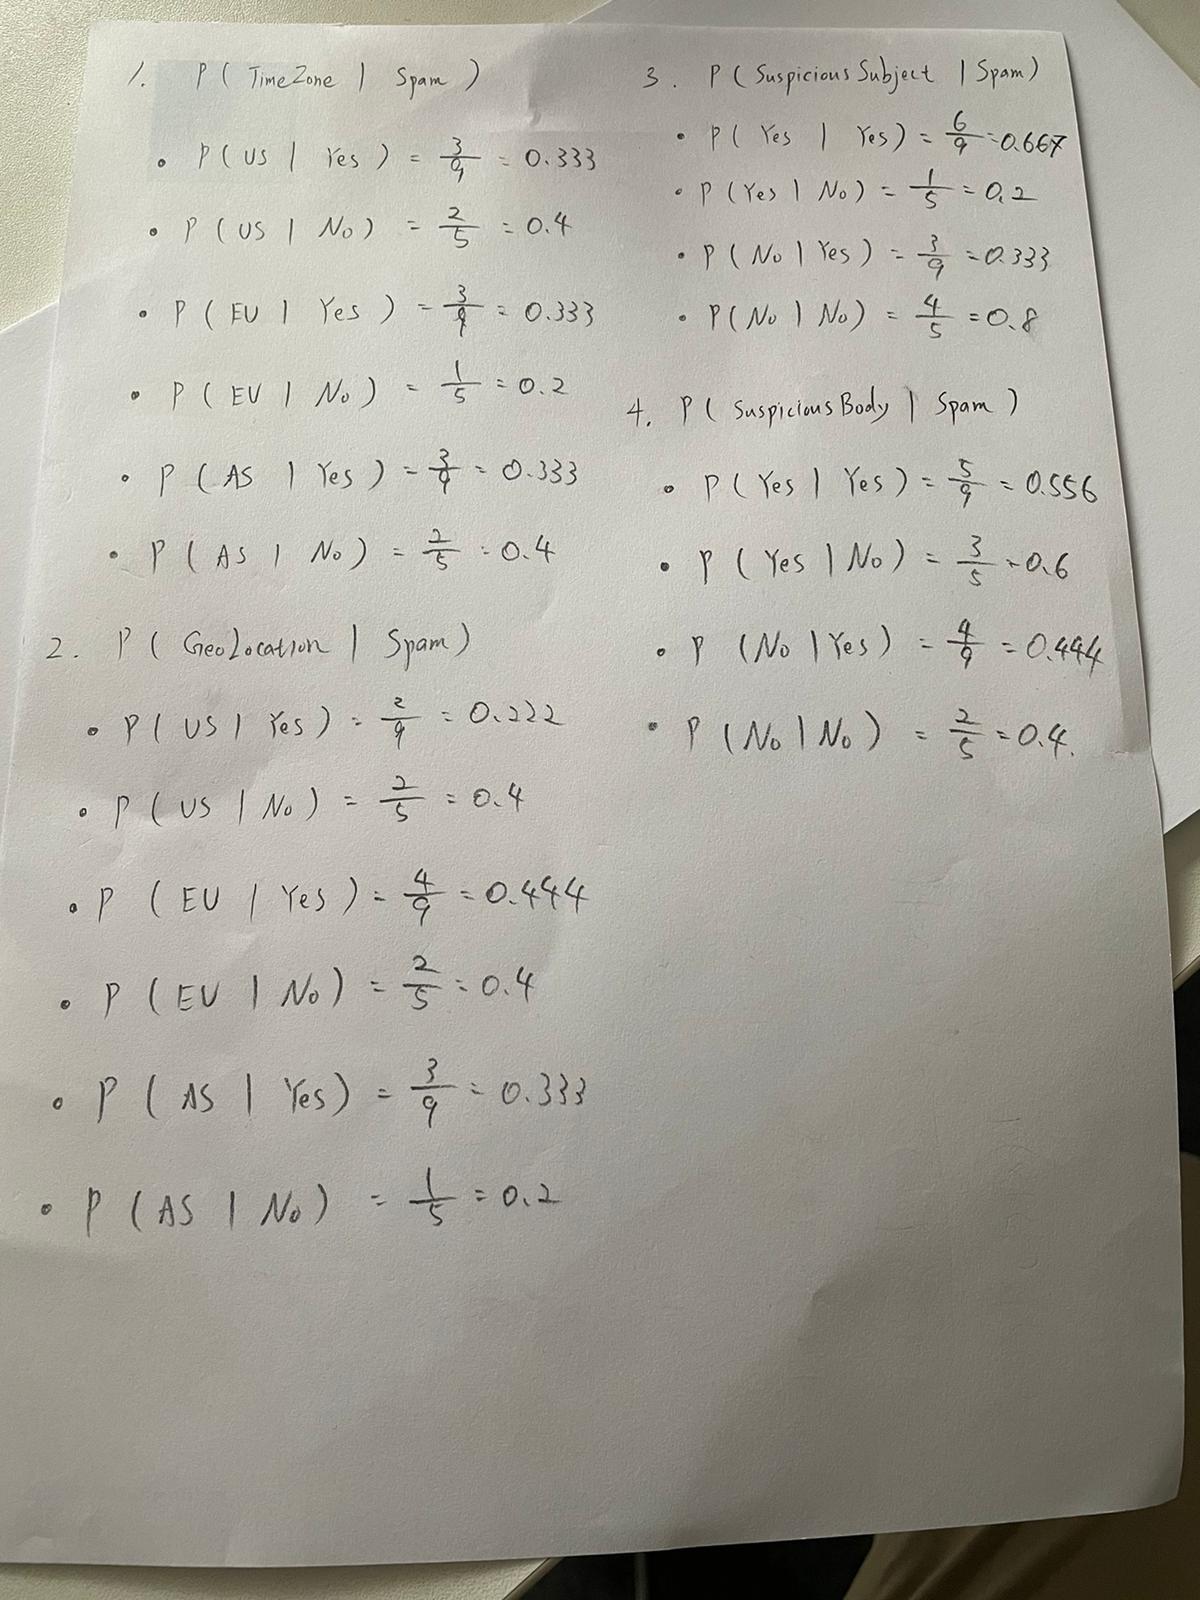 1. P ( TimeZone | Spam )
• P ( US | Yes ) = 3/9 = 0.333
• P ( US | No ) = 2/5 = 0.4
• P ( EU | Yes ) = 3/9 = 0.333
• P ( EU | No ) = 1/5 = 0.2
• P ( AS | Yes ) = 3/9 = 0.333
• P ( AS | No ) = 2/5 = 0.4
2. P ( GeoLocation | Spam )
• P ( US | Yes ) = 2/9 = 0.222
• P ( US | No ) = 2/5 = 0.4
• P ( EU | Yes ) = 4/9 = 0.444
• P ( EU | No ) = 2/5 = 0.4
• P ( AS | Yes ) = 3/9 = 0.333
• P ( AS | No ) = 1/5 = 0.2
3. P ( Suspicious Subject | Spam )
• P ( Yes | Yes ) = 6/9 = 0.667
• P ( Yes | No ) = 1/5 = 0.2
• P ( No | Yes ) = 3/9 = 0.333
• P ( No | No ) = 4/5 = 0.8
4. P ( Suspicious Body | Spam )
• P ( Yes | Yes ) = 5/9 = 0.556
• P ( Yes | No ) = 3/5 = 0.6
• P ( No | Yes ) = 4/9 = 0.444
• P ( No | No ) = 2/5 = 0.4.